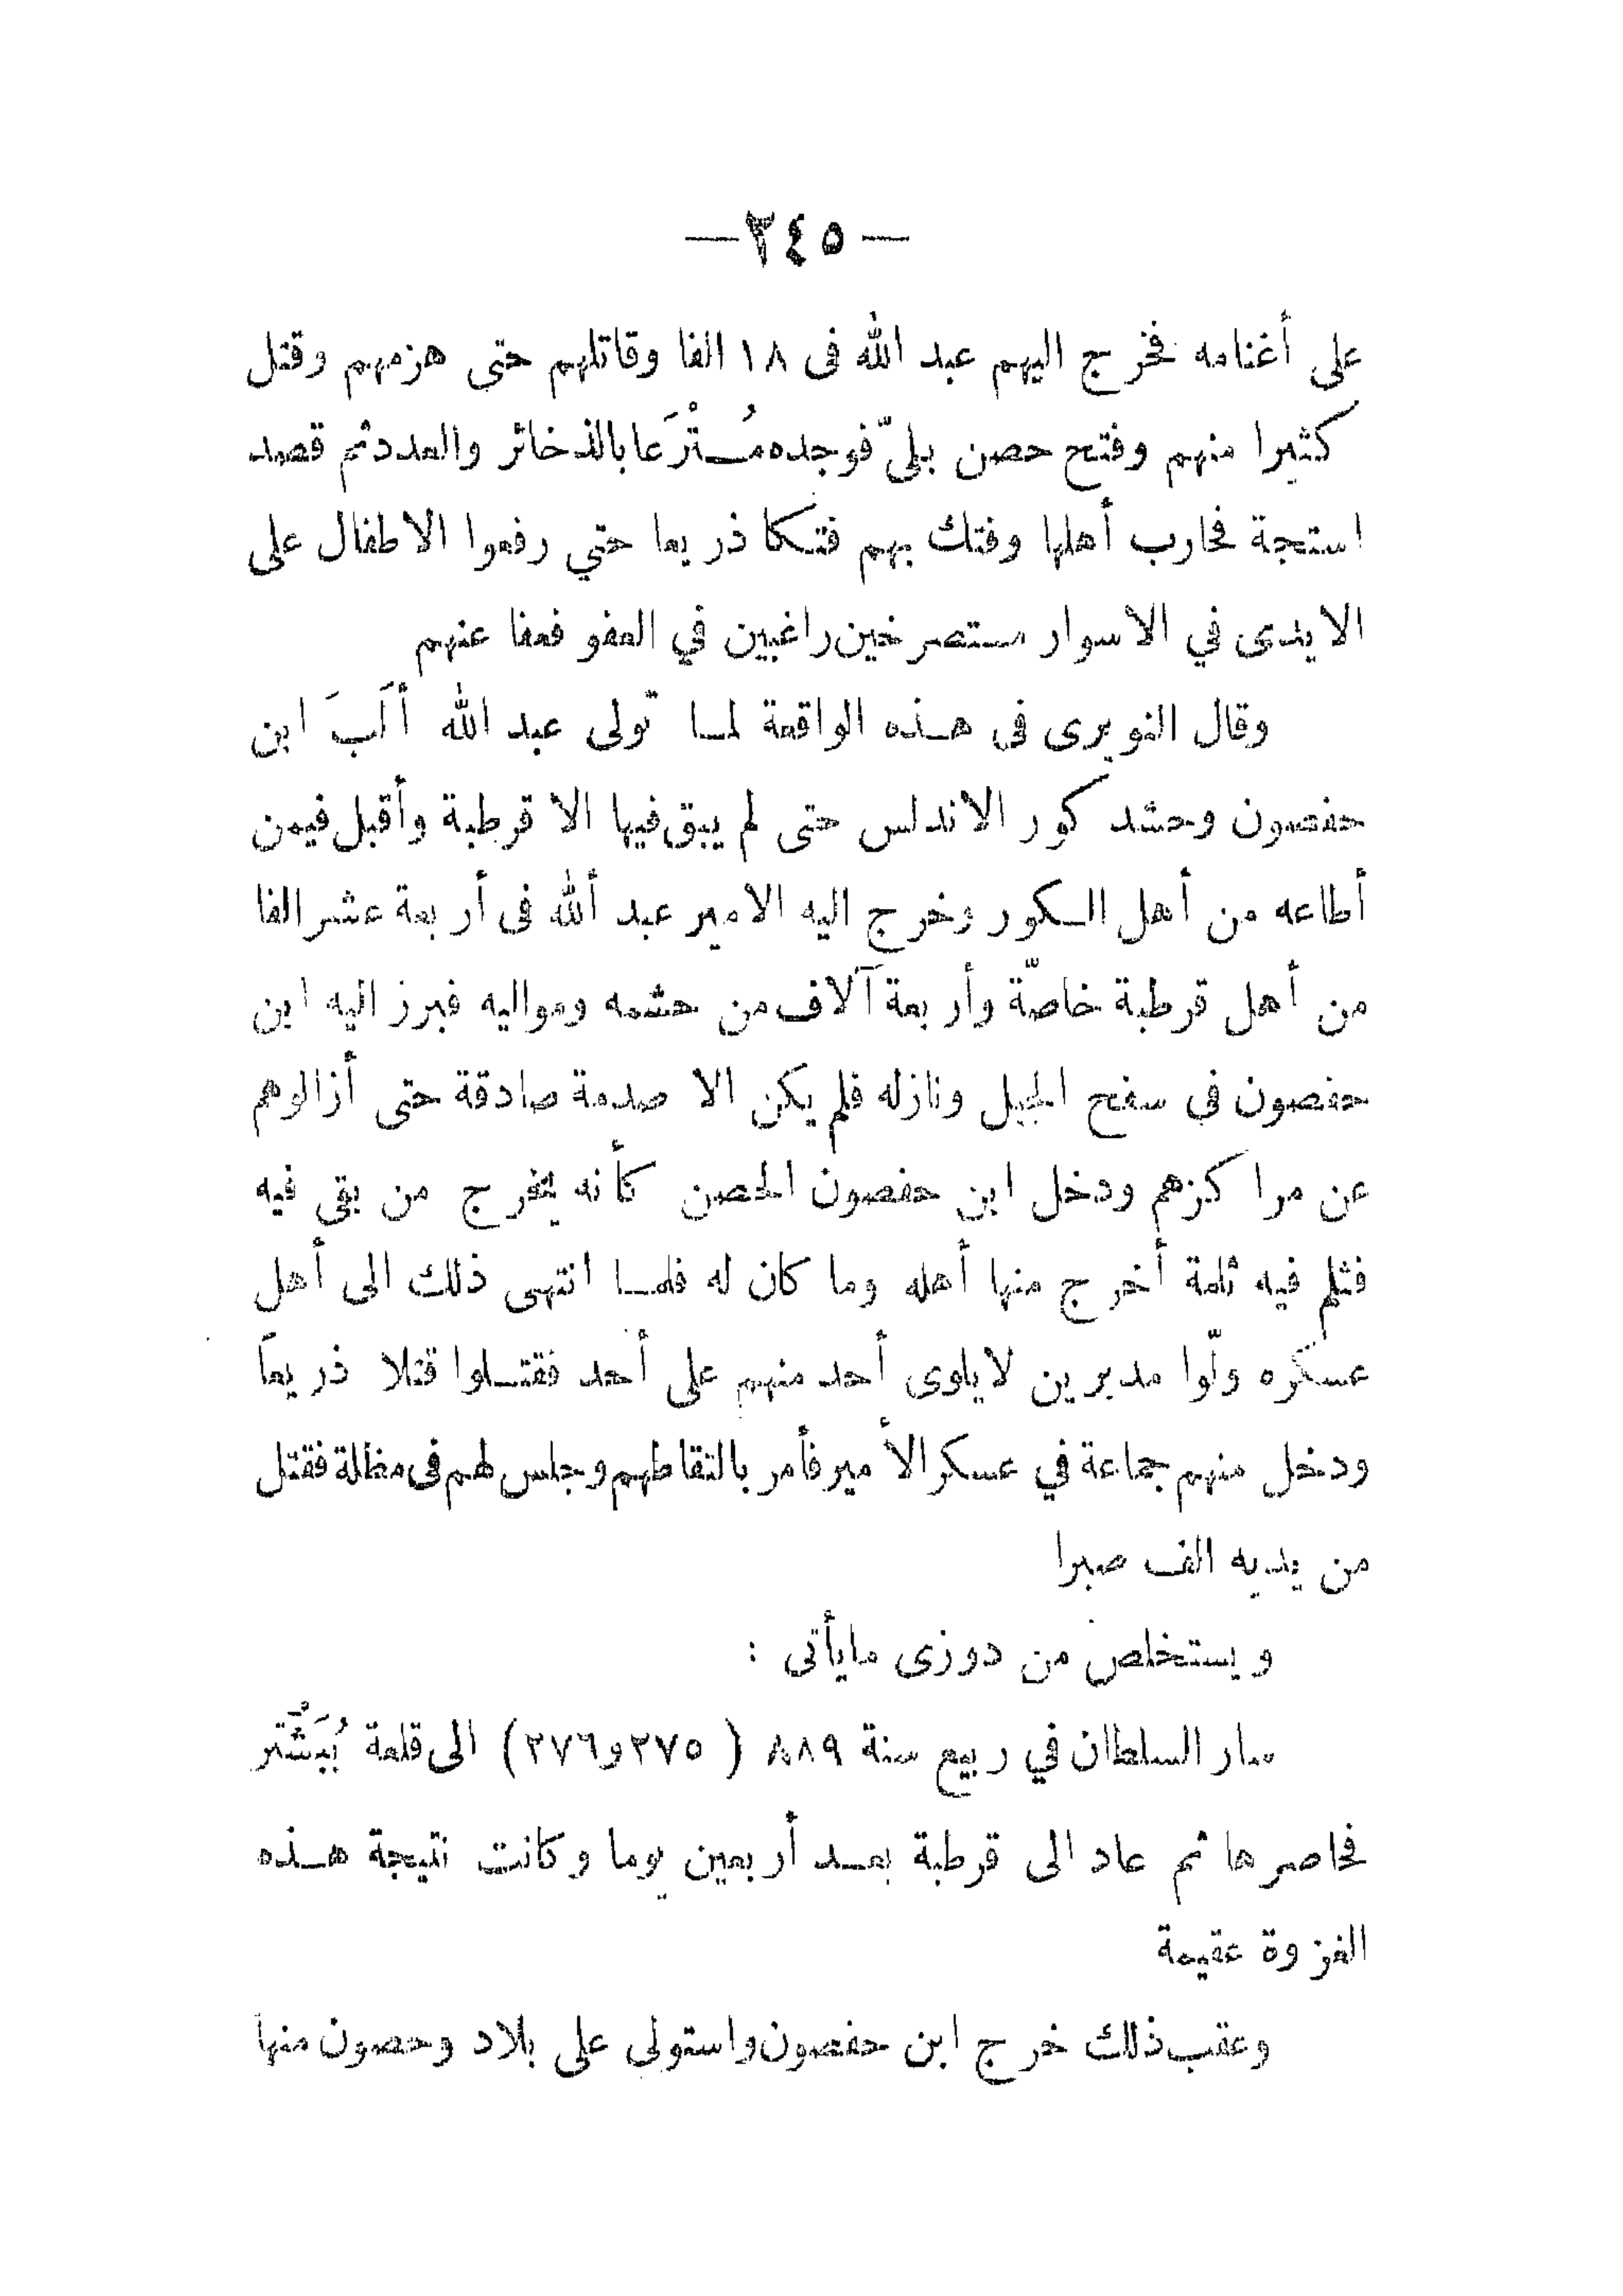 —٢٤٥—
على أغنامه فخرج اليهم عبد الله فى ١٨ الفا وقاتلهم حتى هزمهم وقتل
كثيرا منهم وفتح حصن بلىّ فوجده مُـتْرَعا بالذخائر والعدد ثم قصد
استجة فحارب أهلها وفتك بهم فتكا ذريعا حتي رفعوا الاطفال على
الايدى في الاسوار مستصرخين راغبين في العفو فعفا عنهم
وقال النويرى فى هـذه الواقعة لمـا تولى عبد الله ألَبَ ابن
حفصون وحشد كور الاندلس حتى لم يبق فيها الا قرطبة وأقبل فيمن
أطاعه من أهل الـكور وخرج اليه الامير عبد ألله فى أربعة عشر الفا
من أهل قرطبة خاصّة وأربعة آلاف من حشمه ومواليه فبرز اليه ابن
حفصون في سفح الجبل ونازله فلم يكن الا صدمة صادقة حتى أزالوهم
عن مراكزهم ودخل ابن حفصون الحصن كأنه يخرج من بقى فيه
فثلم فيه ثلمة أخرج منها أهله وما كان له فلمـا انتهى ذلك الى أهل
عسكره ولّوا مدبرين لايلوى أحد منهم على أحد فقتـلوا قتلا ذريعاَ
ودخل منهم جماعة في عسكر الأمير فأمر بالتقاطهم وجلس لهم فى مظلة فقتل
من يديه الف صبرا
ويستخلص من دوزى مايأتى :
سار السلطان في ربيع سنة ٨٨٩ ( ٢٧٥ و٢٧٦) الى قلعة بُبَشْتَر
فحاصرها ثم عاد الى قرطبة بعـد أربعين يوما وكانت نتيجة هـذه
الغزوة عقيمة
وعقب ذلك خرج ابن حفصون واستولى على بلاد وحصون منها